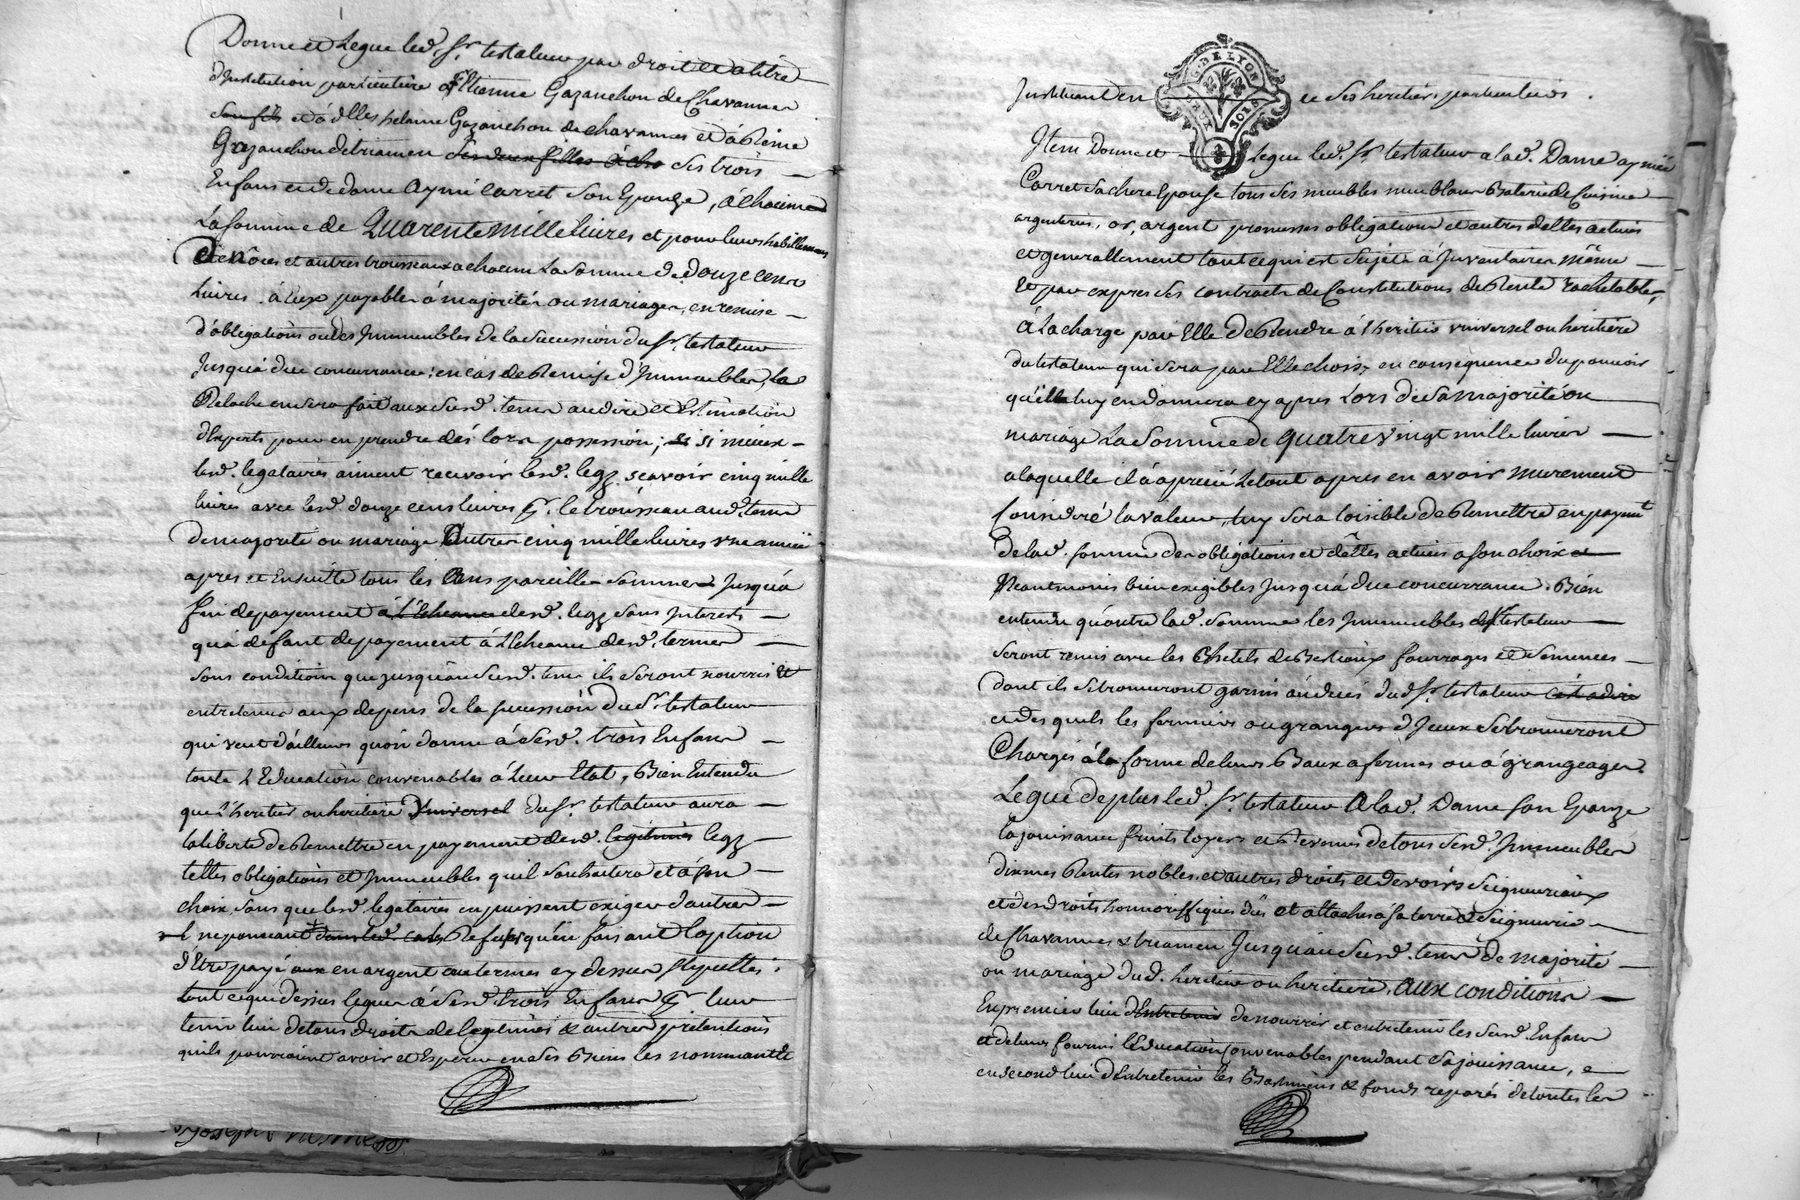 Donne et Legue led. Sr. testateur par droit et a titre
d'Institution particulière à Etienne Gazanchon de Chavannes
son fils et à dlles helaine Gazanchon de chavannes et à Reine
Gazanchon de triamen ses deux filles ses trois
Enfans et de dame Aymé Carret son Epouze, à chacun
La somme de Quarente mille livres et pour leurs habillemens
de nôces et autres trousseaux a chacun La somme de douze cens
Livres. à Eux payables à majorité ou mariage, en remise
d'obligations ou des Immeubles de la Succession du Sr. testateur
Jusqu'à due concurrance; en cas de Remise d'Immeubles, La
Relache en sera fait aux susd. termes au dire et Estimation
d'Experts pour en prendre dés lors possession; si mieux
lesd. legataires aiment recevoir lesd. legz. scavoir cinq mille
livres avec lesd. douze cens livres p. le trousseau aud. terme
de majorité ou mariage autres cinq mille livres une année
apres et Ensuitte tous les ans pareilles sommes Jusqu'à
fin de payement à l'Echeance desd. legz sans Interests
qu'à defaut de payement à l'Echeance desd. termes
sous condition que jusqu'ausd. tems ils seront nourris et
entretenus aux depens de la succession du Sr. testateur
qui veut d'ailleurs qu'on donne à sesd. trois Enfans
toute L'Education convenables à Leur Etat, Bien Entendu
que l'heritier ou heritiere Universel du Sr. testateur aura
la liberté de Remettre en payement desd. legitimes legz
telles obligations et Immeubles qu'il souhaitera et à son
choix sans que lesd. legataires en puissent exiger d'autres
et ne pouvant Refuser qu'en faisant l'option
d'Etre payé aux en argent aux termes cy dessus stipullés.
tout ce que dessus legué à sesd. trois Enfans p. leur
tenir lieu de tous droits de legitimes & autres prétentions
quils pourroient avoir et Esperer en ses Biens les nommant et
Joseph
Instituant en ce ses heritiers particuliers.
G. DE LYON
DEUX SOLS
Item Donne et Legue led. Sr. testateur a lad. Dame aymée
Carret sa chere Epouse tous ses meubles meublans Baterie de Cuisine
argenteries, or, argent promesses obligations et autres dettes actives
et generallement tout ce qui est sujet à Inventaire même
Et par expres ses contracts de Constitutions de Rente rachetables,
à la charge par Elle de Rendre à l'heritier universel ou heritiere
du testateur qui sera par Elle choisy en consequence du pouvoir
qu'il luy en donnera cy apres Lors de sa majorité ou
mariage La Somme de quatre vingt mille livres
a laquelle il a aprecié Le tout apres en avoir murement
Consideré la valeur, luy sera loisible de Remettre en paymt
de lad. somme des obligations et dêttes actives a son choix
Neantmoins bien exigibles Jusqu'à due concurrance. Bien
entendu qu'outre lad. somme les Immeubles du Sr testateur
seront remis avec les Chetels de Bestiaux fourrages et semences
dont ils se trouveront garnis au deces dud. Sr. testateur c'est a dire
et des quels les fermiers ou grangers d'Iceux se trouveront
Chargés à la forme de leurs Baux a fermes ou à grangeages.
Legue de plus led. Sr. testateur a lad. Dame son Epouze
la jouissance fruits loyers et Revenus de tous sesd. Immeubles
dixmes Rentes nobles et autres droits et devoirs Seigneuriaux
et des droits honnorifiques dûs et attachés à sa terre & Seigneurie
de Chavannes & triamen Jusqu'aususd. tems de majorité
ou mariage dud. heritier ou heritiere, aux conditions
En premier lieu d'Entretenir de nourrir et entretenir les susd. Enfans
et de leurs fournir l'Education Convenables pendant sa jouissance, &
en second lieu d'Entretenir les Bastimens & fonds reparés de toutes les